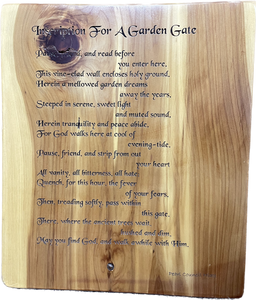 Inscription For A Garden Gate
Pause, friend, and read before
you enter here,
This vine-clad wall encloses holy ground,
Herein a mellowed garden dreams
away the years,
Steeped in serene, sweet light
and muted sound.
Herein tranquility and peace abide,
For God walks here at cool of
evening-tide.
Pause, friend, and strip from out
your heart
All vanity, all bitterness, all hate;
Quench, for this hour, the fever
of your fears,
Then treading softly, pass within
this gate.
There, where the ancient trees wait,
and dim
May you find God, and walk awhile with Him.